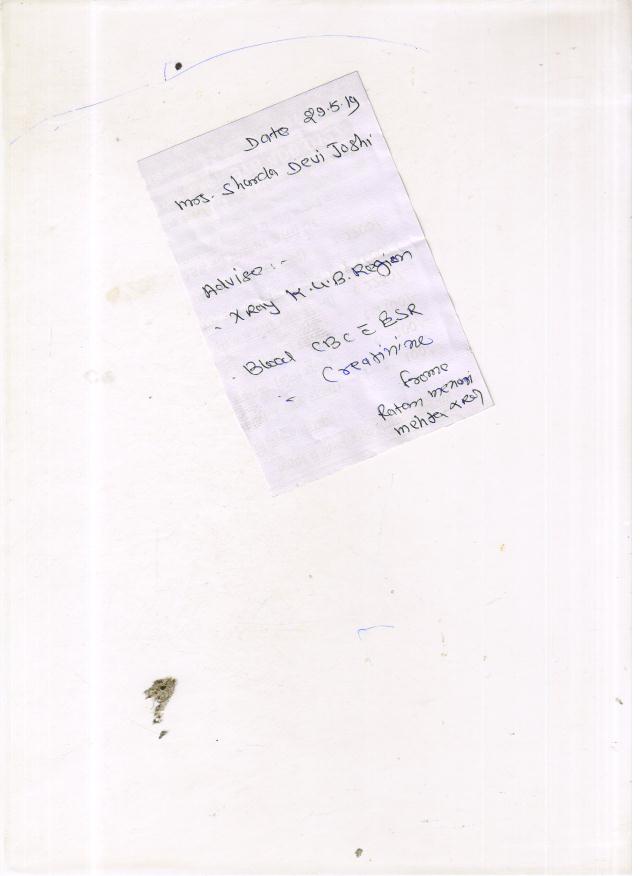 Date 29.5.19
Mrs. Sharda Devi Joshi
Advise :-
. X Ray K.U.B. Region
. Blood CBC c̄ ESR
- Creatinine
frome
Ratan
mehta X Ray